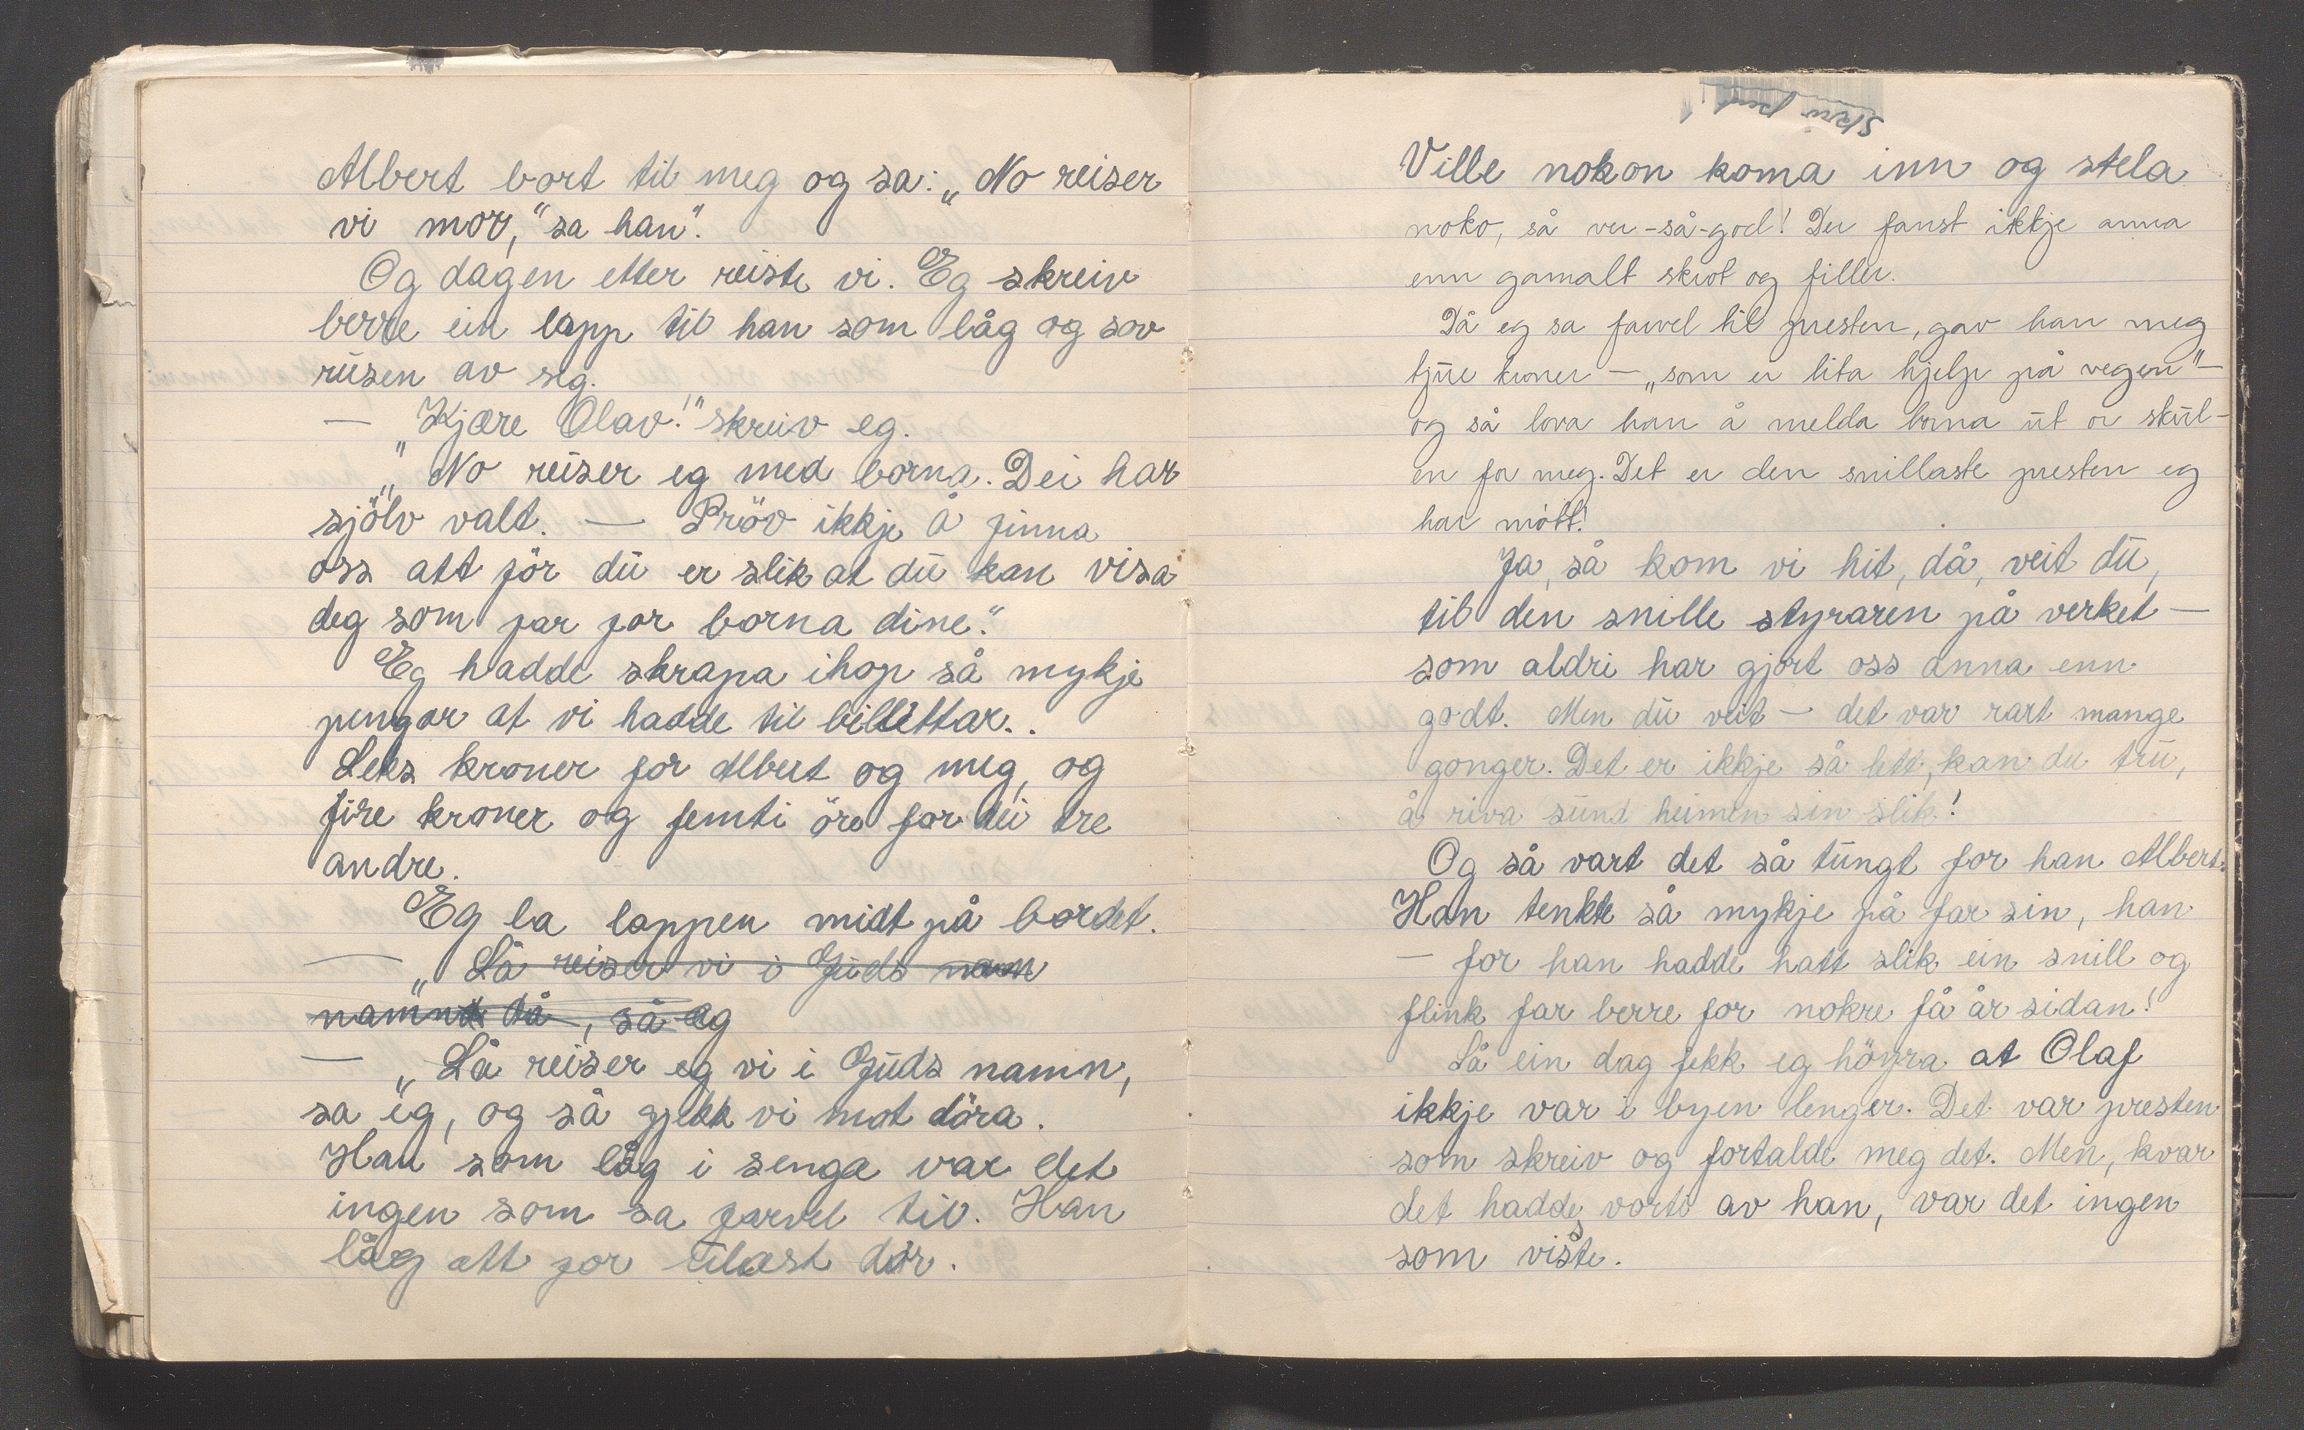 Albert bort til meg og sa: „No reiser
vi mor,“ sa han“.
Og dagen etter reiste vi. Eg skreiv
berre ein lapp til han som låg og sov
rusen av seg.
— „Kjære Olav!“ skreiv eg.
„No reiser eg med borna. Dei har
sjölv valt. — Pröv ikkje å finna
oss att för du er slik at du kan visa
deg som far for borna dine.“
Eg hadde skrapa ihop så mykje
pengar at vi hadde til billettar..
Seks kroner for Albert og meg, og
fire kroner og femti öre for dei tre
andre.
Eg la lappen midt på bordet.
— „Så reiser vi i Guds namn
namn då, sa eg
— „Så reiser eg vi i Guds namn,
sa eg, og så gjekk vi mot döra.
Han som låg i senga var det
ingen som sa farvel til. Han
låg att for ulæst dør.
Skriv pent!
Ville nokon koma inn og stela
noko, så ver-så-god! Der fanst ikkje anna
enn gamalt skrot og filler.
Då eg sa farvel til presten, gav han meg
tjue kroner — „som ei lita hjelp på vegen“ —
og så lova han å melda borna ut or skul-
en for meg. Det er den snillaste presten eg
har mött!
Ja, så kom vi hit, då, veit du,
til den snille styraren på verket —
som aldri har gjort oss anna enn
godt. Men du veit — det var rart mange
gonger. Det er ikkje så lett, kan du tru,
å riva sund heimen sin slik!
Og så vart det så tungt for han Albert.
Han tenkte så mykje på far sin, han
— for han hadde hatt slik ein snill og
flink far berre for nokre få år sidan!
Så ein dag fekk eg höyra at Olaf
ikkje var i byen lenger. Det var presten
som skreiv og fortalde meg det. Men, kvar
det hadde vorte av han, var det ingen
som visste.